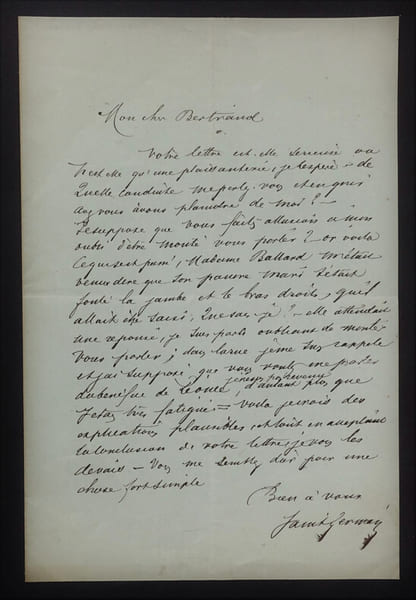 Mon cher Bertrand
Votre lettre est-elle serieuse ou
n'est elle qu'une plaisanterie, je l'espère - de
Quelle conduite me parlez vous et en quoi
avez vous à vous plaindre de moi? -
Je suppose que vous faites allusion à mon
oubli d'être monté vous parler? or voila
ce qui s'est passé, Madame Ballard m'était
venu dire que son pauvre mari s'était
foulé la jambe et le bras droits, qu'il
allait être saisi, Que sais-je? - elle attendait
une reponse, je suis parti oubliant de monter
Vous parler; dans la rue je me suis rappelé
et j'ai supposé que vous vouliez me parler
du bénéfice de
je ne suis pas revenu
d'autant plus que
J'étais très fatigué = Voila je crois des
explications plausibles et tout en acceptant
la conclusion de votre lettre, je vous les
devais - Vous me semblez dur pour une
chose fort simple
Bien à vous
Saint Germain